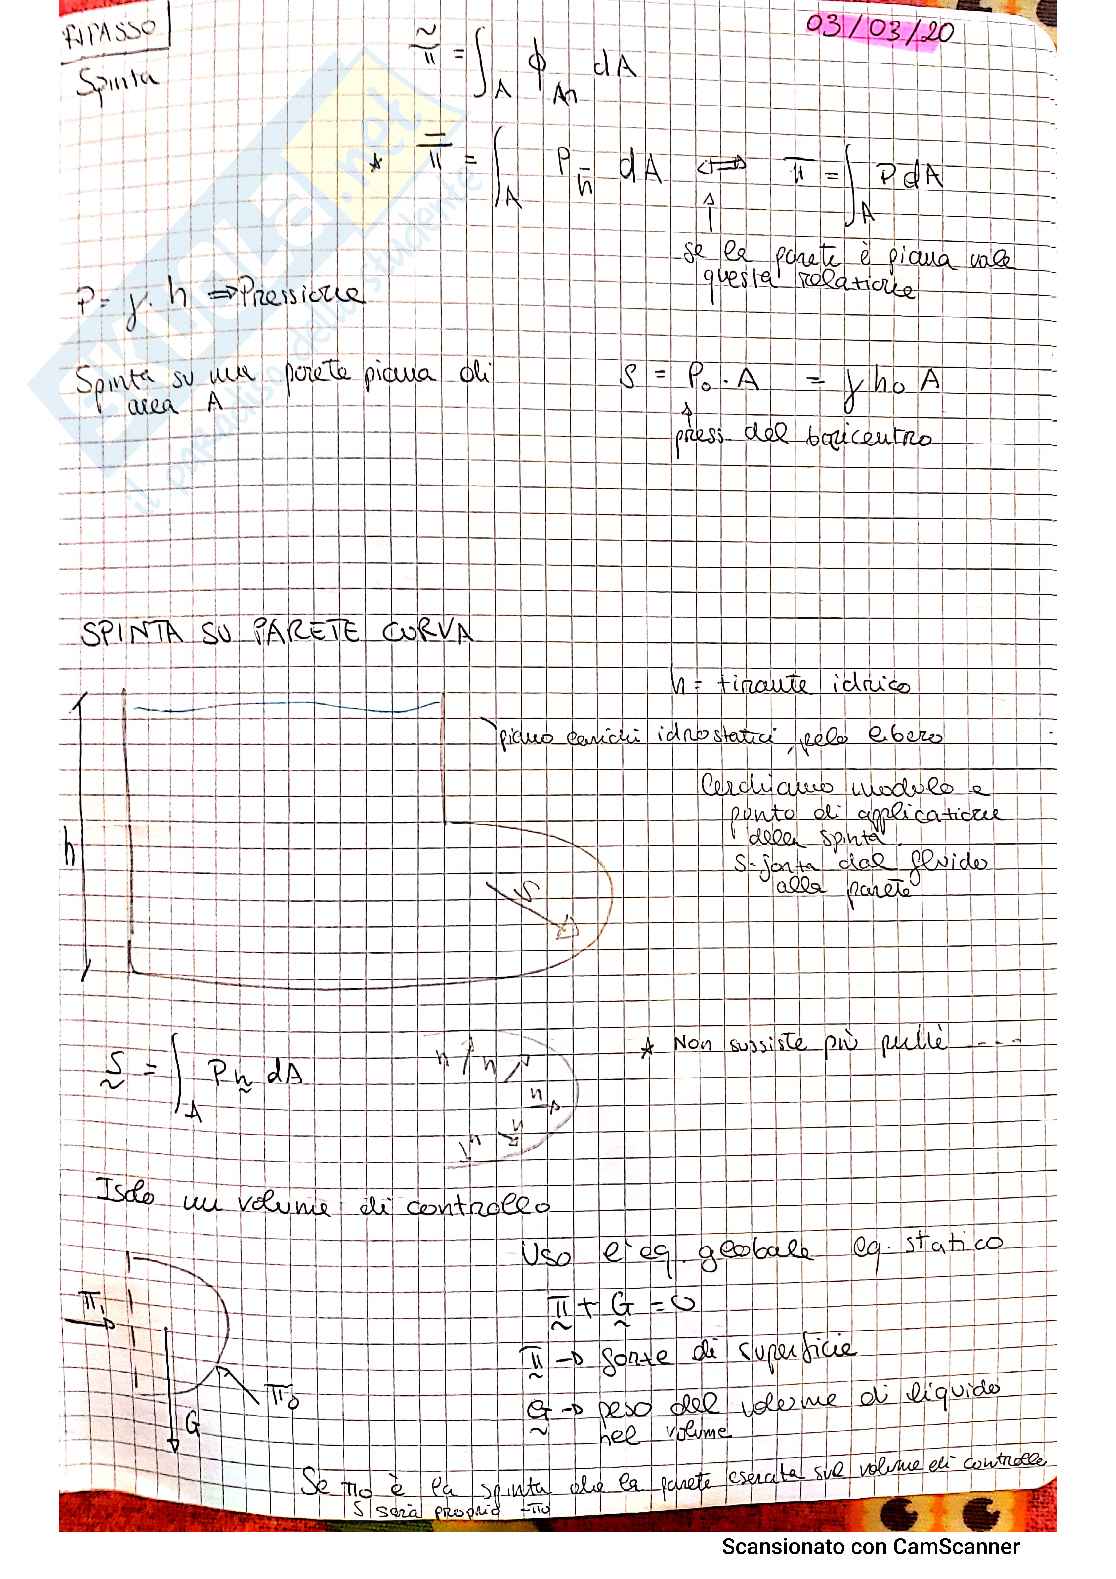 RIPASSO
03/03/20
Spinta
π = ∫_A ϕ_An dA
* π = ∫_A P n dA ⟺ π = ∫_A P dA
se la parete è piana vale
questa relazione
P = γ · h ⇒ Pressione
Spinta su una parete piana di
area A
S = P₀ · A = γ h₀ A
press. del baricentro
SPINTA SU PARETE CURVA
h = tirante idrico
piano carichi idrostatici, pelo libero
Cerchiamo modulo e
punto di applicazione
della spinta
S fornita dal fluido
alla parete
h
S
S = ∫_A P n dA
n n n n n
* Non sussiste più perchè ----
Isolo un volume di controllo
Uso l'eq. globale eq. statico
π + G = 0
π → forze di superficie
G → peso del volume di liquido
nel volume
π₁
π₀
G
Se π₀ è la spinta che la parete esercita sul volume di controllo
S sarà proprio -π₀
SKUOLA.net
il paradiso dello studente
Scansionato con CamScanner